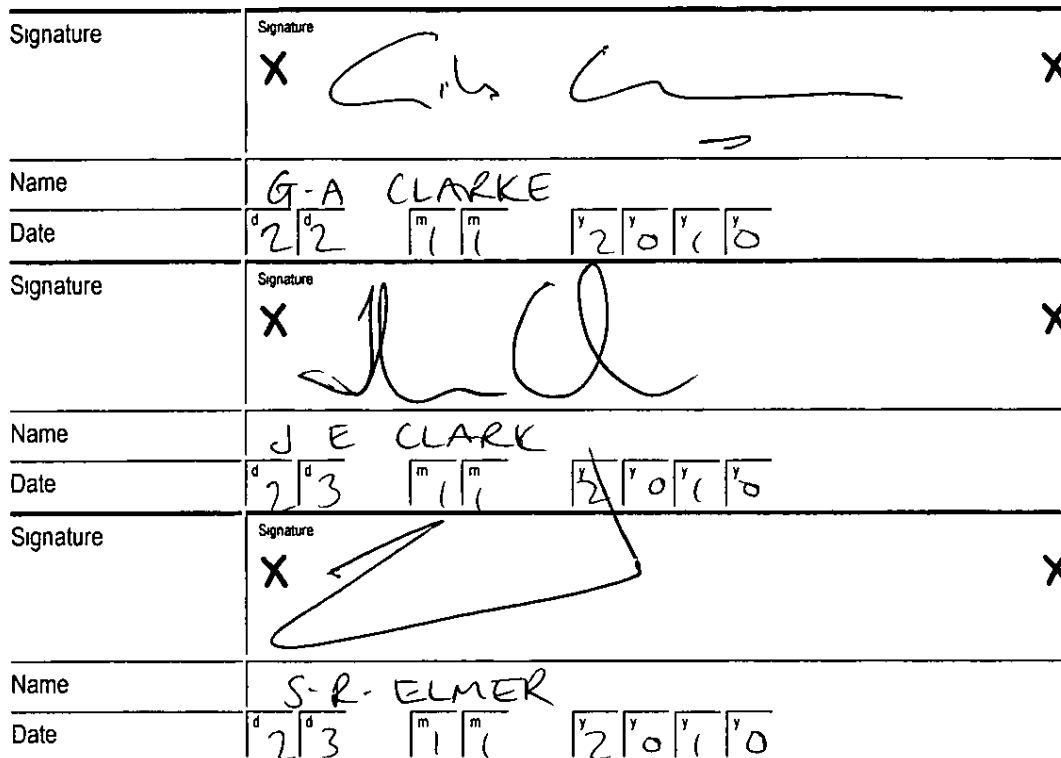 Signature Signature
X X
Name G-A CLARKE
Date d2 d2 m1 m1 y2 y0 y1 y0
Signature Signature
X X
Name J E CLARK
Date d2 d3 m1 m1 y2 y0 y1 y0
Signature Signature
X X
Name S-R- ELMER
Date d2 d3 m1 m1 y2 y0 y1 y0